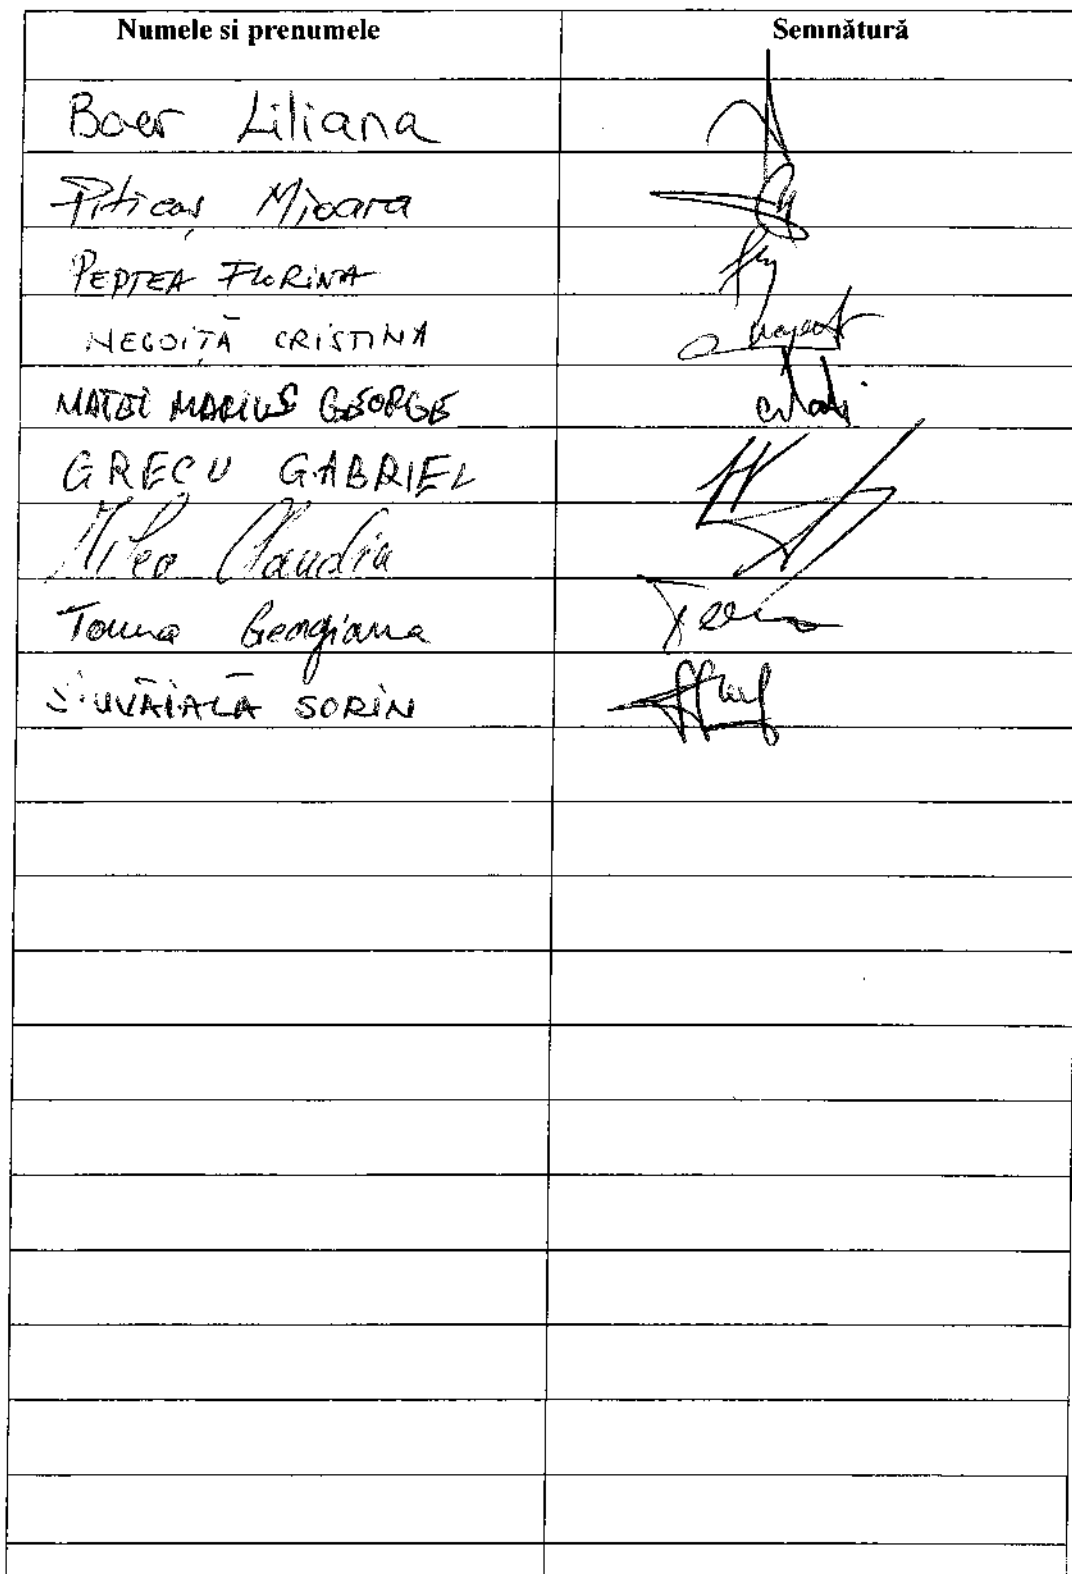 Numele si prenumele Semnătură
Boer Liliana
Piticaș Mioara
PEPTEA FLORINA
NEGOIȚĂ CRISTINA
MATEI MARIUS GEORGE
GRECU GABRIEL
Claudia
Toma Georgiana
SORIN